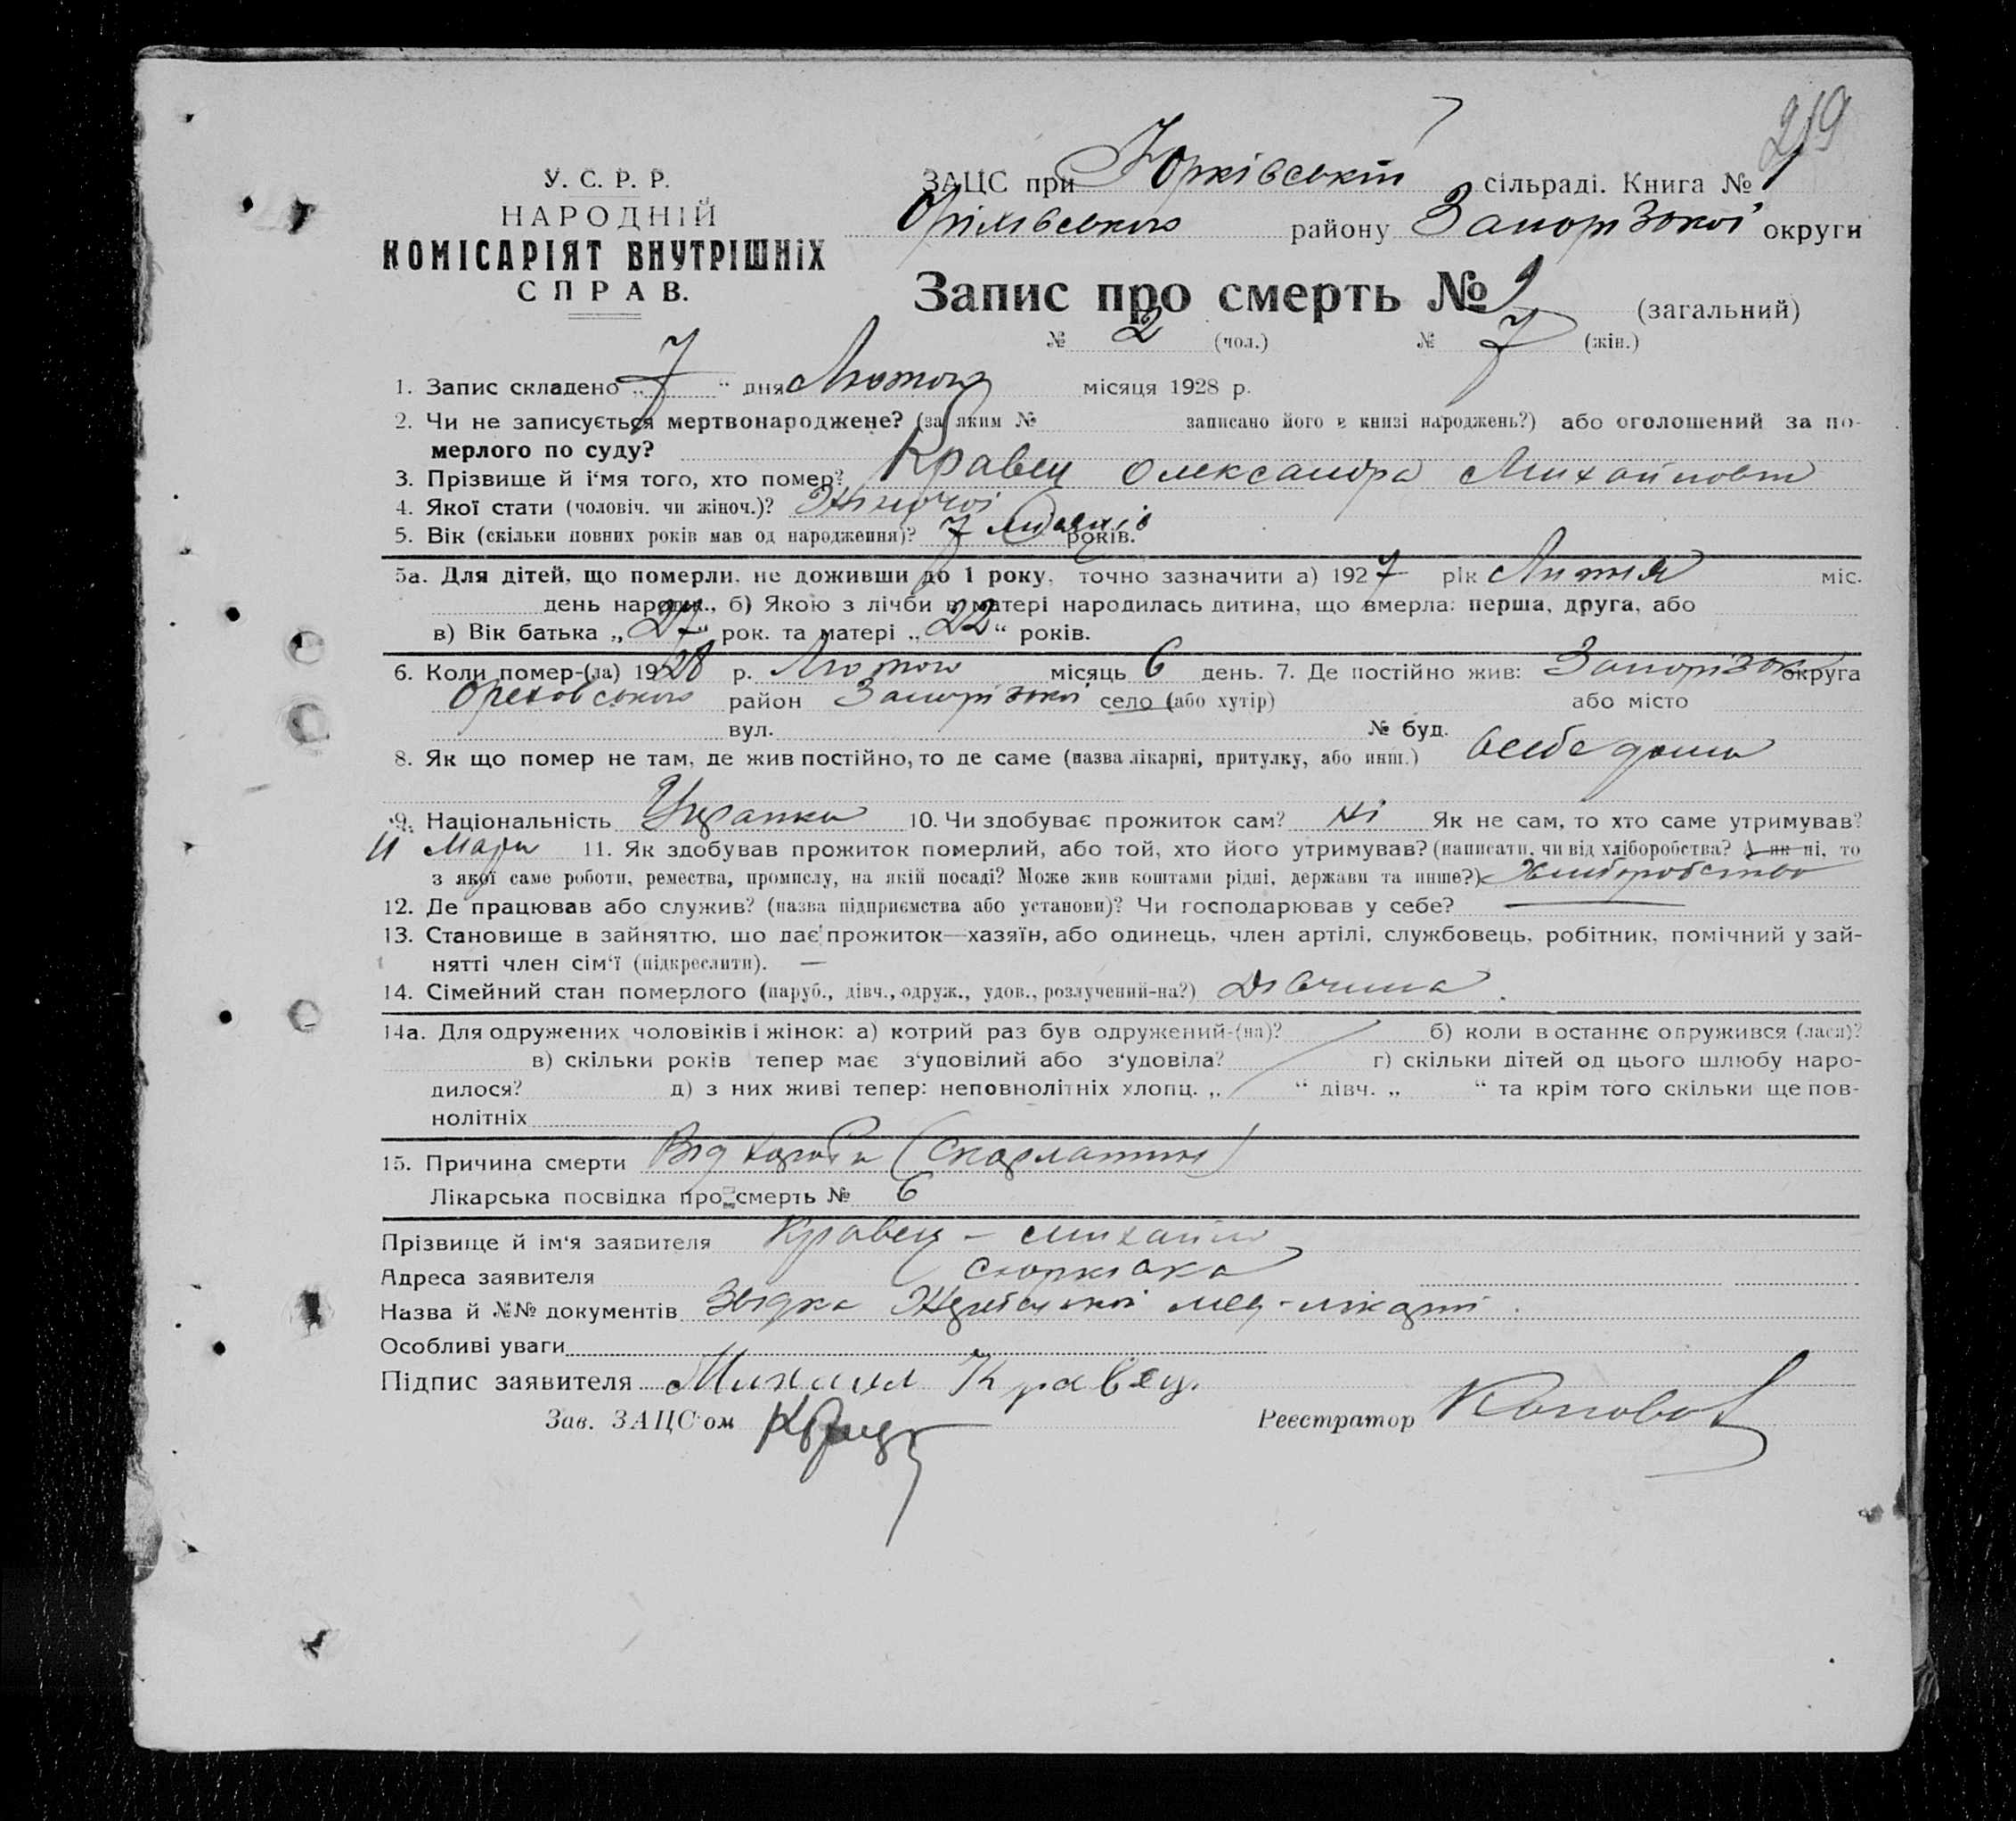 219
У. С. Р. Р.
НАРОДНІЙ
КОМІСАРІЯТ ВНУТРІШНІХ
СПРАВ.
ЗАЦС при Юрківській сільраді. Книга № 1
Оріхівського району Запорізької округи
Запис про смерть № 9 (загальний)
№ 2 (чол.) № 7 (жін.)
1. Запис складено „7“ дня Лютого місяця 1928 р.
2. Чи не записується мертвонароджене? (за яким № записано його в книзі народжень?) або оголошений за по-
мерлого по суду?
3. Прізвище й і‘мя того, хто помер? Кравец Олександра Михайловна
4. Якої стати (чоловіч. чи жіноч.)? Жіночої
5. Вік (скільки повних років мав од народження)? 7 років.
5а. Для дітей, що померли, не доживши до 1 року, точно зазначити а) 1927 рік Липня міс.
день народж., б) Якою з лічби в матері народилась дитина, що вмерла: перша, друга, або
в) Вік батька „27“ рок. та матері „22“ років.
6. Коли помер-(ла) 1928 р. Лютого місяць 6 день. 7. Де постійно жив: Запорізької округа
Ореховського район Запорізької село (або хутір) або місто
вул. № буд.
8. Як що помер не там, де жив постійно, то де саме (назва лікарні, притулку, або инш.) дома
9. Національність Украпка 10. Чи здобуває прожиток сам? Ні Як не сам, то хто саме утримував?
11. Як здобував прожиток померлий, або той, хто його утримував? (написати, чи від хліборобства? А як ні, то
з якої саме роботи, ремества, промислу, на якій посаді? Може жив коштами рідні, держави та инше?) Хліборобство
12. Де працював або служив? (назва підприємства або установи)? Чи господарював у себе?
13. Становище в зайняттю, шо дає прожиток—хазяїн, або одинець, член артілі, службовець, робітник, помічний у зай-
нятті член сім‘ї (підкреслити). —
14. Сімейний стан померлого (паруб., дівч., одруж., удов., розлучений-на?) Дівчина
14а. Для одружених чоловіків і жінок: а) котрий раз був одружений-(на)? б) коли востаннє одружився (лася)?
в) скільки років тепер має з‘удовілий або з‘удовіла? г) скільки дітей од цього шлюбу наро-
дилося? д) з них живі тепер: неповнолітніх хлопц. „ “ дівч. „ “ та крім того скільки ще пов-
нолітніх
15. Причина смерти Від (Скарлатини)
Лікарська посвідка про смерть № 6
Прізвище й ім‘я заявителя Кравец – Михайло
Адреса заявителя
Назва й №№ документів
Особливі уваги
Підпис заявителя Михаил Кравец.
Зав. ЗАЦС‘ом Реєстратор